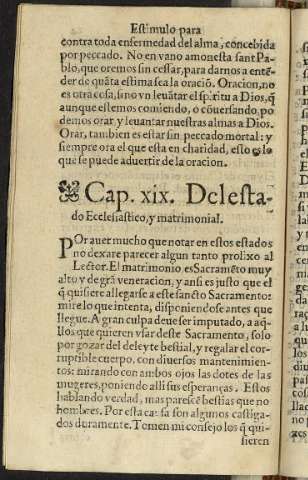 Estimulo para
contra toda enfermedad del alma, concebida
por peccado. No en vano amonesta sant Pa-
blo, que oremos sin cessar, para darnos a entē-
der de quāta estima sea la oraciō. Oracion, no
es otra cosa, sino vn leuātar el spiritu a Dios, q̄
aunque estemos comiendo, o cōuersando, po
demos orar, y leuantar nuestras almas a Dios.
Orar, tambien es estar sin peccado mortal: y
siempre ora el que esta en charidad, esto es lo
que se puede aduertir de la oracion.
Cap. xix. Del esta-
do Ecclesiastico, y matrimonial.
POr auer mucho que notar en estos estados
no dexare parecer algun tanto prolixo al
Lector. El matrimonio es Sacramēto muy
alto y de grā veneracion, y ansi es justo que el
q̄ quisiere allegarse a este sancto Sacramento:
mire lo que intenta, disponiendose antes que
llegue. A gran culpa deue ser imputado, a aq̄-
llos que quieren vsar deste Sacramento, solo
por gozar del deleyte bestial, y regalar el cor-
ruptible cuerpo, con diuersos mantenimien-
tos: mirando con ambos ojos las dotes de las
mugeres, poniendo alli sus esperanças. Estos
hablando verdad, mas parescē bestias que no
hombres. Por esta causa son algunos castiga-
dos duramente. Tomen mi consejo los q̄ qui-
sieren